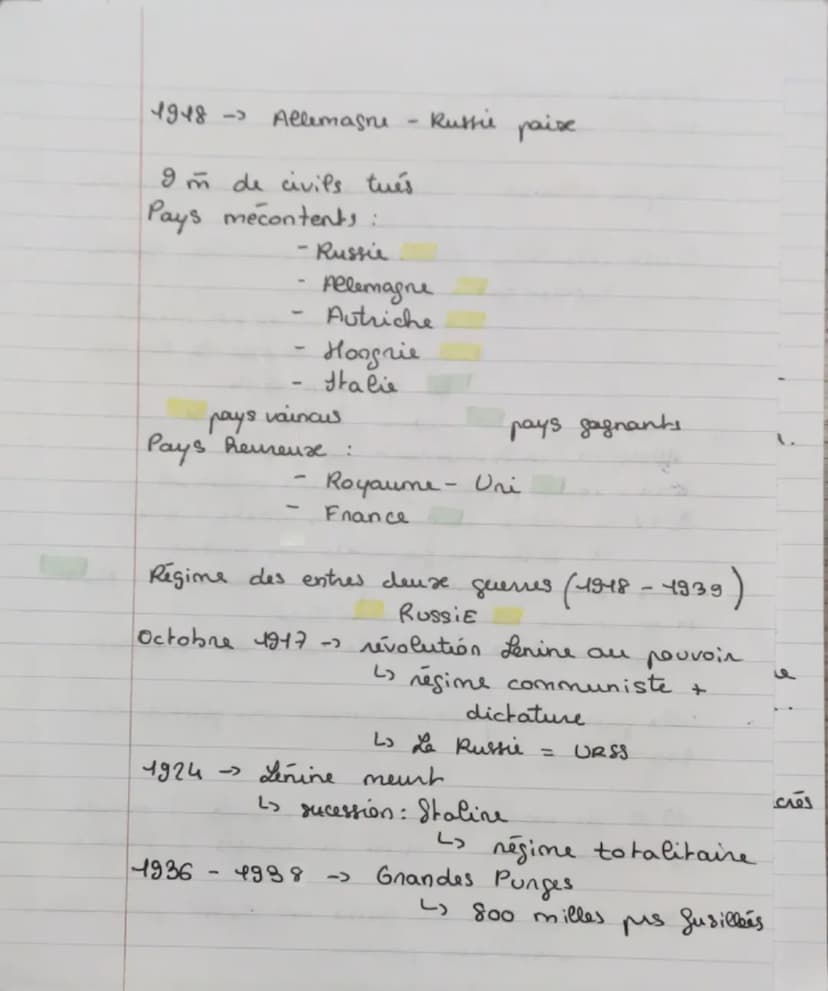 1918 -> Allemagne - Russie paixe
9 m̄ de civils tués
Pays mécontents :
- Russie
- Allemagne
- Autriche
- Hoogrie
- Italie
pays vaincus pays gagnants
Pays Heureuxe :
- Royaume-Uni
- France
Régime des entres deuxe guerres (1918 - 1939)
RUSSIE
Octobre 1917 -> révolution Lenine au pouvoir
↳ régime communiste +
dictature
↳ La Russie = URSS
1924 -> Lénine meurt
↳ sucession : Staline
↳ régime totalitaire
1936 - 1938 -> Grandes Purges
↳ 800 milles prs fusillés
crés